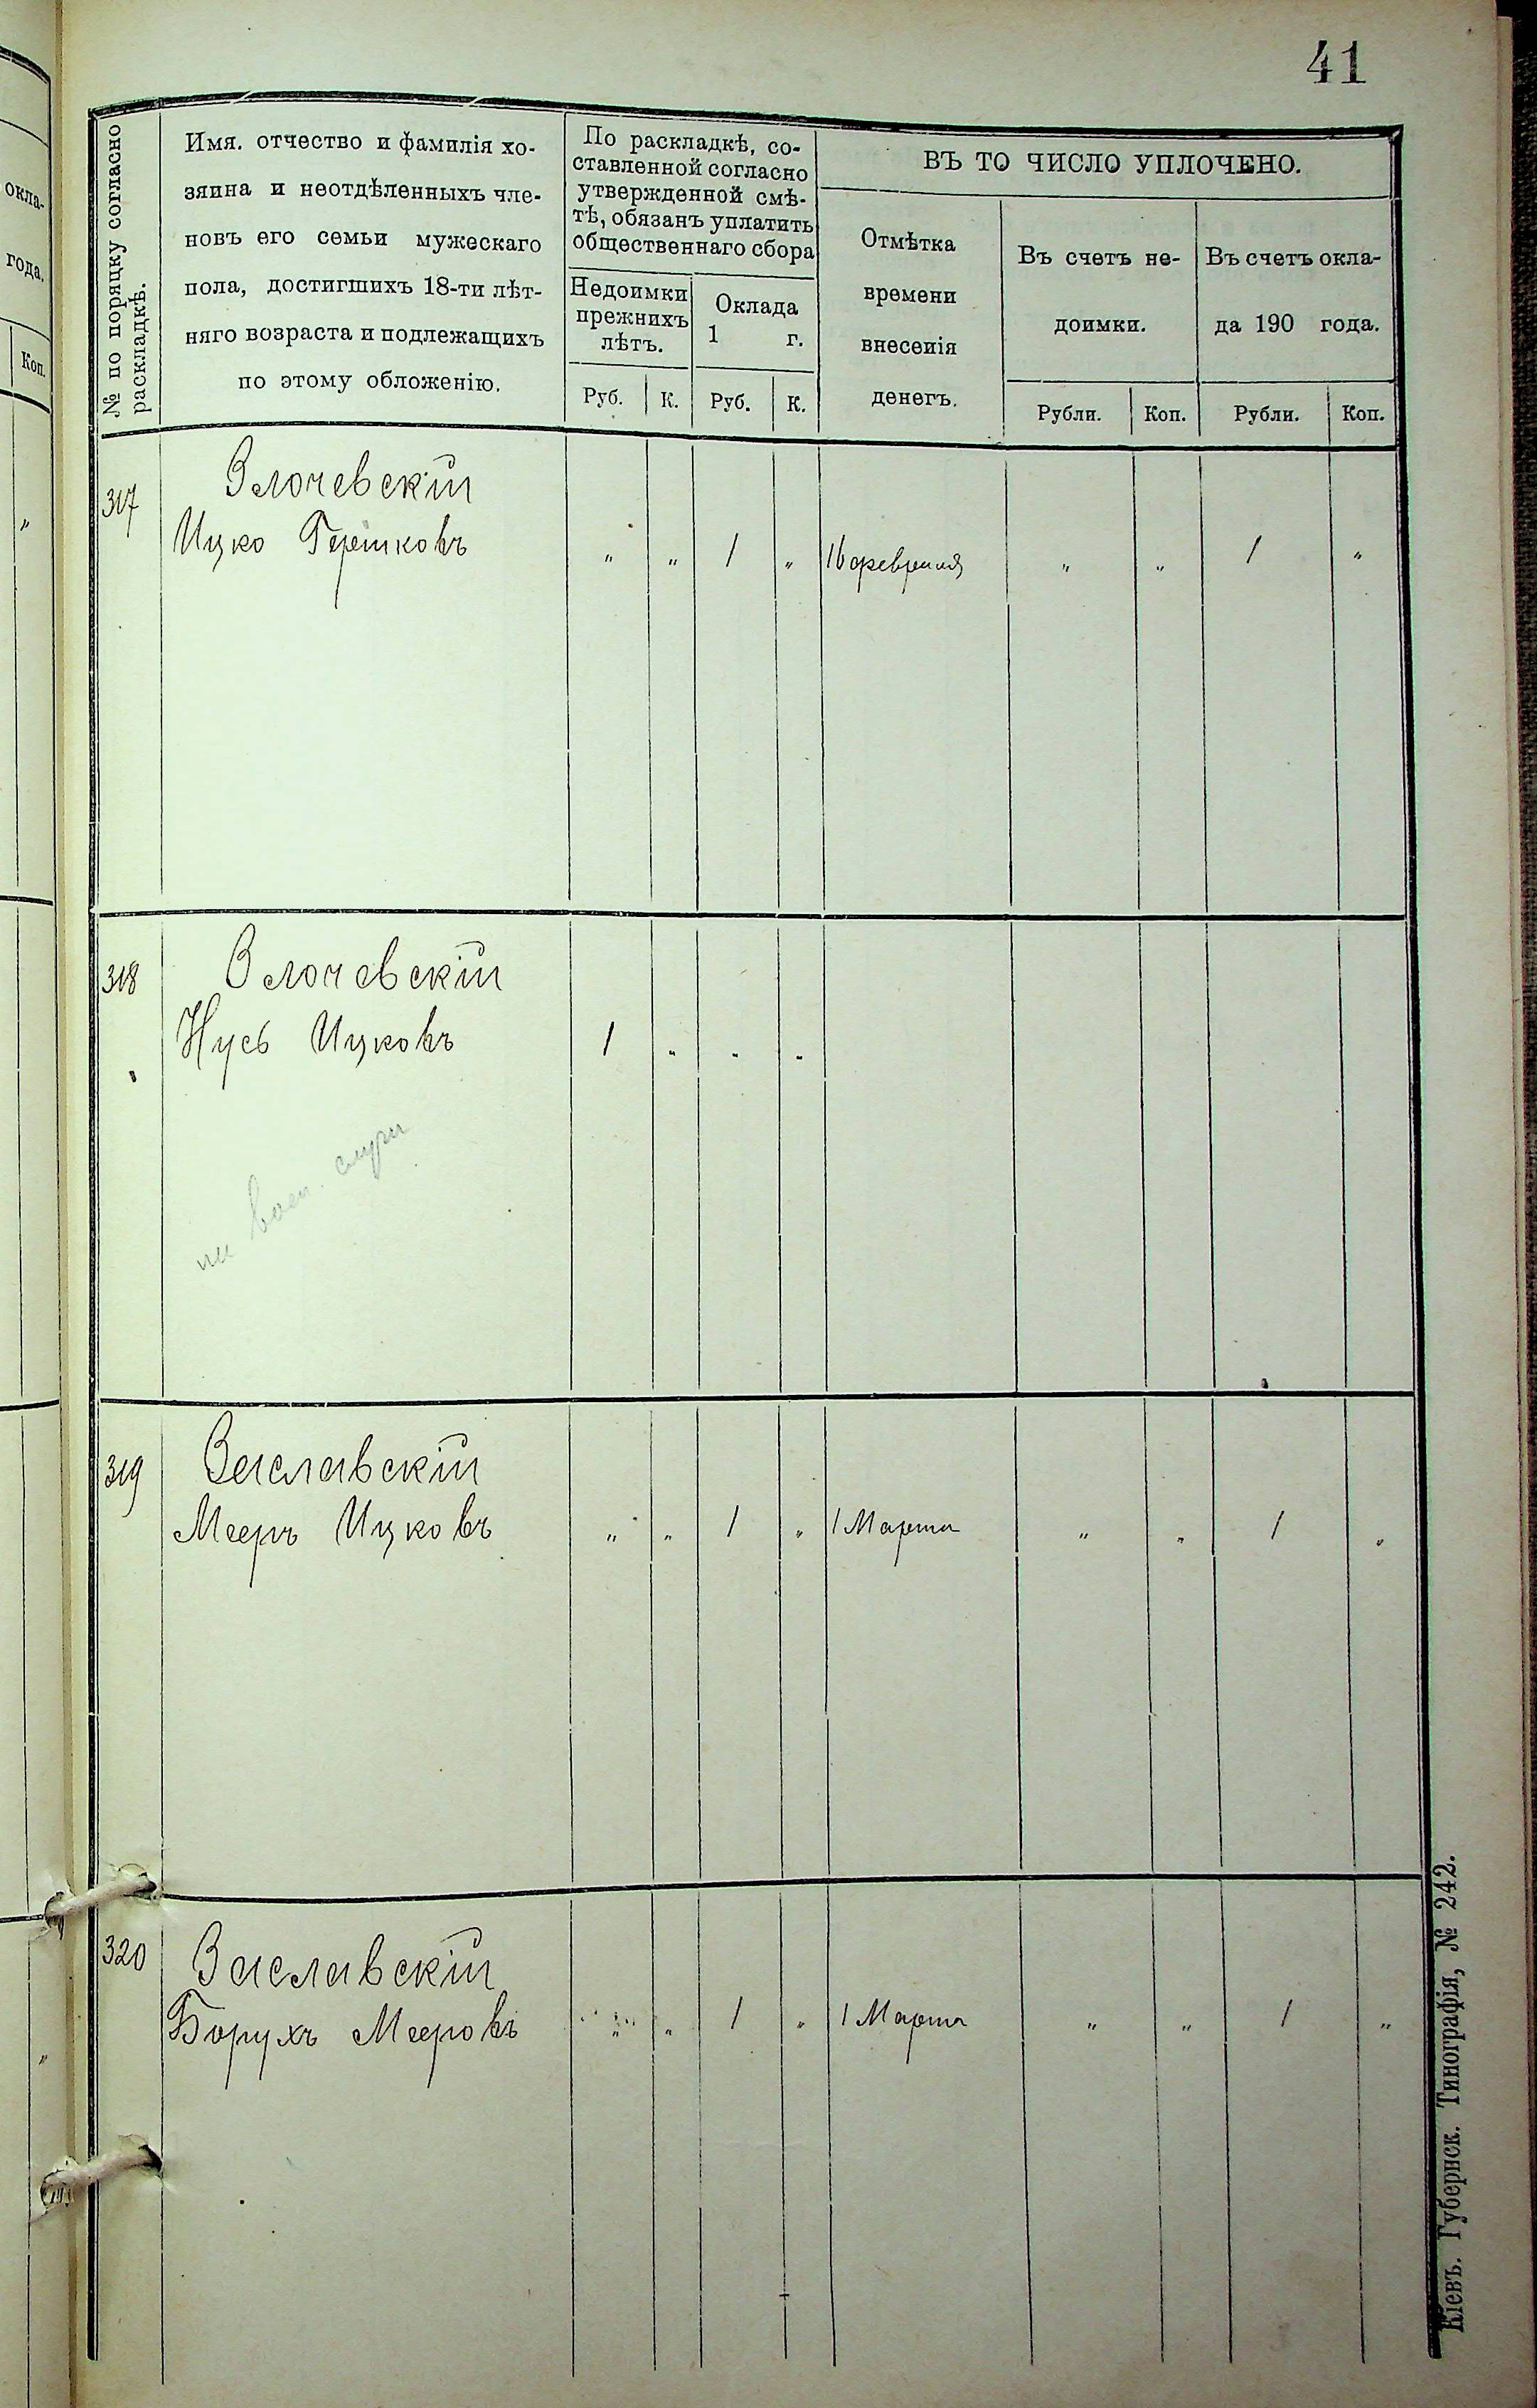 41
№ по порядку согласно
раскладкѣ.
Имя. отчество и фамилія хо-
зяина и неотдѣленныхъ чле-
новъ его семьи мужескаго
пола, достигшихъ 18-ти лѣт-
няго возраста и подлежащихъ
по этому обложенію.
По раскладкѣ, со-
ставленной согласно
утвержденной смѣ-
тѣ, обязанъ уплатить
общественнаго сбора
Недоимки
прежнихъ
лѣтъ.
Оклада
1 г.
Руб. К. Руб. К.
ВЪ ТО ЧИСЛО УПЛОЧЕНО.
Отмѣтка
времени
внесенія
денегъ.
Въ счетъ не-
доимки.
Въ счетъ окла-
да 190 года.
Рубли. Коп. Рубли. Коп.
317 Злочевскій
Ицко Гершковъ „ „ 1 „ 16 февраля „ „ 1 „
318 Злочевскій
Нусь Ицковъ 1 „ „ „
на воен. служ
319 Заславскій
Мееръ Ицковъ „ „ 1 „ 1 Марта „ „ 1 „
320 Заславскій
Борухъ Мееровъ „ „ 1 „ 1 Марта „ „ 1 „
Кіевъ. Губернск. Типографія, № 242.
окла-
года.
Коп.
„
„